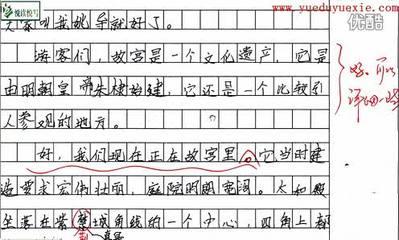 悦读悦写
www.yueduyuexie.com
优酷
叫我姚导就好了。
游客们，故宫是一个文化遗产，它是
由明朝皇帝朱棣始建，它还是一个比较引
人参观的地方。
好，可以
好，我们现在正在故宫里。它当时建
造要求宏伟壮丽，庭院明朗宽阔。太和殿
坐落在紫城角线的一个中心，四角上都